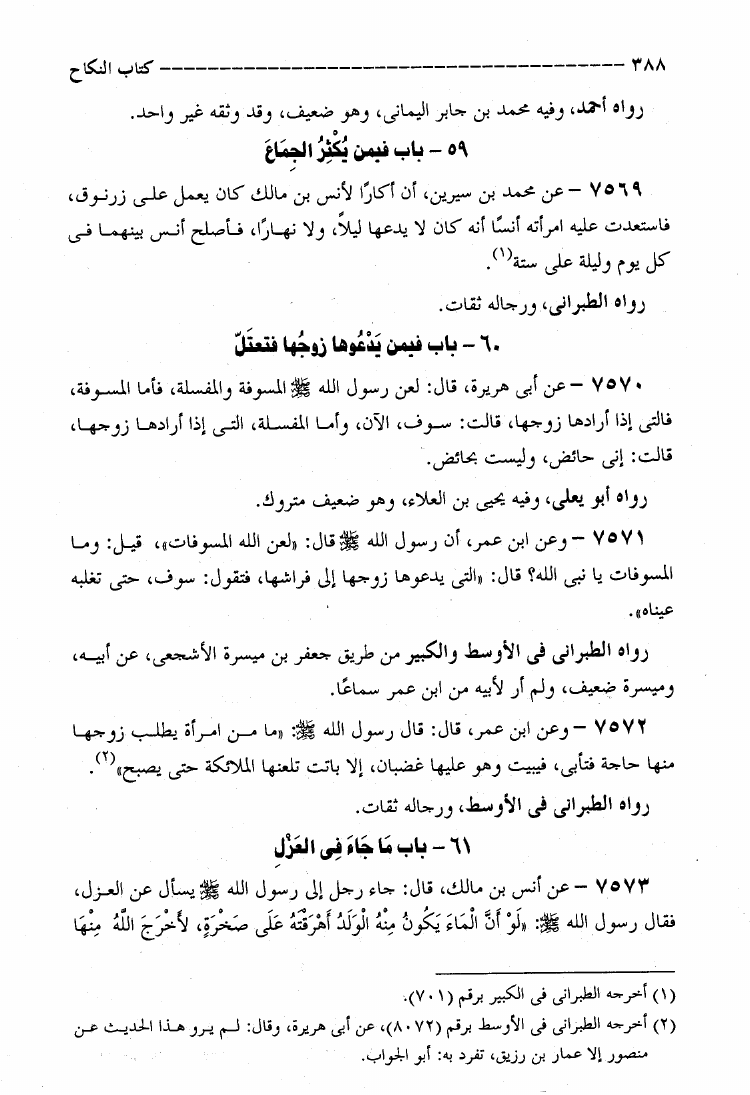 ٣٨٨ ------------------------------------------------ كتاب النكاح
رواه أحمد، وفيه محمد بن جابر اليمانى، وهو ضعيف، وقد وثقه غير واحد.
٥٩ – باب فيمن يُكْثِرُ الجِمَاعَ
٧٥٦٩ – عن محمد بن سيرين، أن أكارًا لأنس بن مالك كان يعمل علـى زرنـوق،
فاستعدت عليه امرأته أنسًا أنه كان لا يدعها ليلاً، ولا نهـارًا، فـأصلح أنـس بينهمـا فـى
كل يوم وليلة على ستة(١).
رواه الطبرانى، ورجاله ثقات.
٦٠ – باب فيمن يَدْعُوها زوجُها فتعتَلّ
٧٥٧٠ – عن أبى هريرة، قال: لعن رسول الله ﷺ المسوفة والمفسلة، فأما المسـوفة،
فالتى إذا أرادها زوجها، قالت: سـوف، الآن، وأمـا المفسـلة، التـى إذا أرادهـا زوجهـا،
قالت: إنى حائض، وليست بحائض.
رواه أبو يعلى، وفيه يحيى بن العلاء، وهو ضعيف متروك.
٧٥٧١ – وعن ابن عمر، أن رسول الله ﷺ قال: «لعن الله المسوفات»، قيـل: ومـا
المسوفات يا نبى الله؟ قال: «التى يدعوها زوجها إلى فراشها، فتقول: سوف، حتى تغلبه
عيناه».
رواه الطبرانى فى الأوسط والكبير من طريق جعفر بن ميسرة الأشجعى، عن أبيـه،
وميسرة ضعيف، ولم أر لأبيه من ابن عمر سماعًا.
٧٥٧٢ – وعن ابن عمر، قال: قال رسول الله ﷺ: «ما مـن امـرأة يطلـب زوجهـا
منها حاجة فتأبى، فيبيت وهو عليها غضبان، إلا باتت تلعنها الملائكة حتى يصبح»(٢).
رواه الطبرانى فى الأوسط، ورجاله ثقات.
٦١ – باب مَا جَاءَ فِى العَزْلِ
٧٥٧٣ – عن أنس بن مالك، قال: جاء رجل إلى رسول الله ﷺ يسأل عن العـزل،
فقال رسول الله ﷺ: «لَوْ أنَّ الْمَاءَ يَكُونُ مِنْهُ الْوَلَدُ أَهْرَقْتَهُ عَلَى صَخْرَةٍ، لأَخْرَجَ اللَّهُ مِنْهَا
(١) أخرجه الطبرانى فى الكبير برقم (٧٠١).
(٢) أخرجه الطبرانى فى الأوسط برقم (٨٠٧٢)، عن أبى هريرة، وقال: لـم يرو هـذا الحديـث عـن
منصور إلا عمار بن رزيق، تفرد به: أبو الجواب.